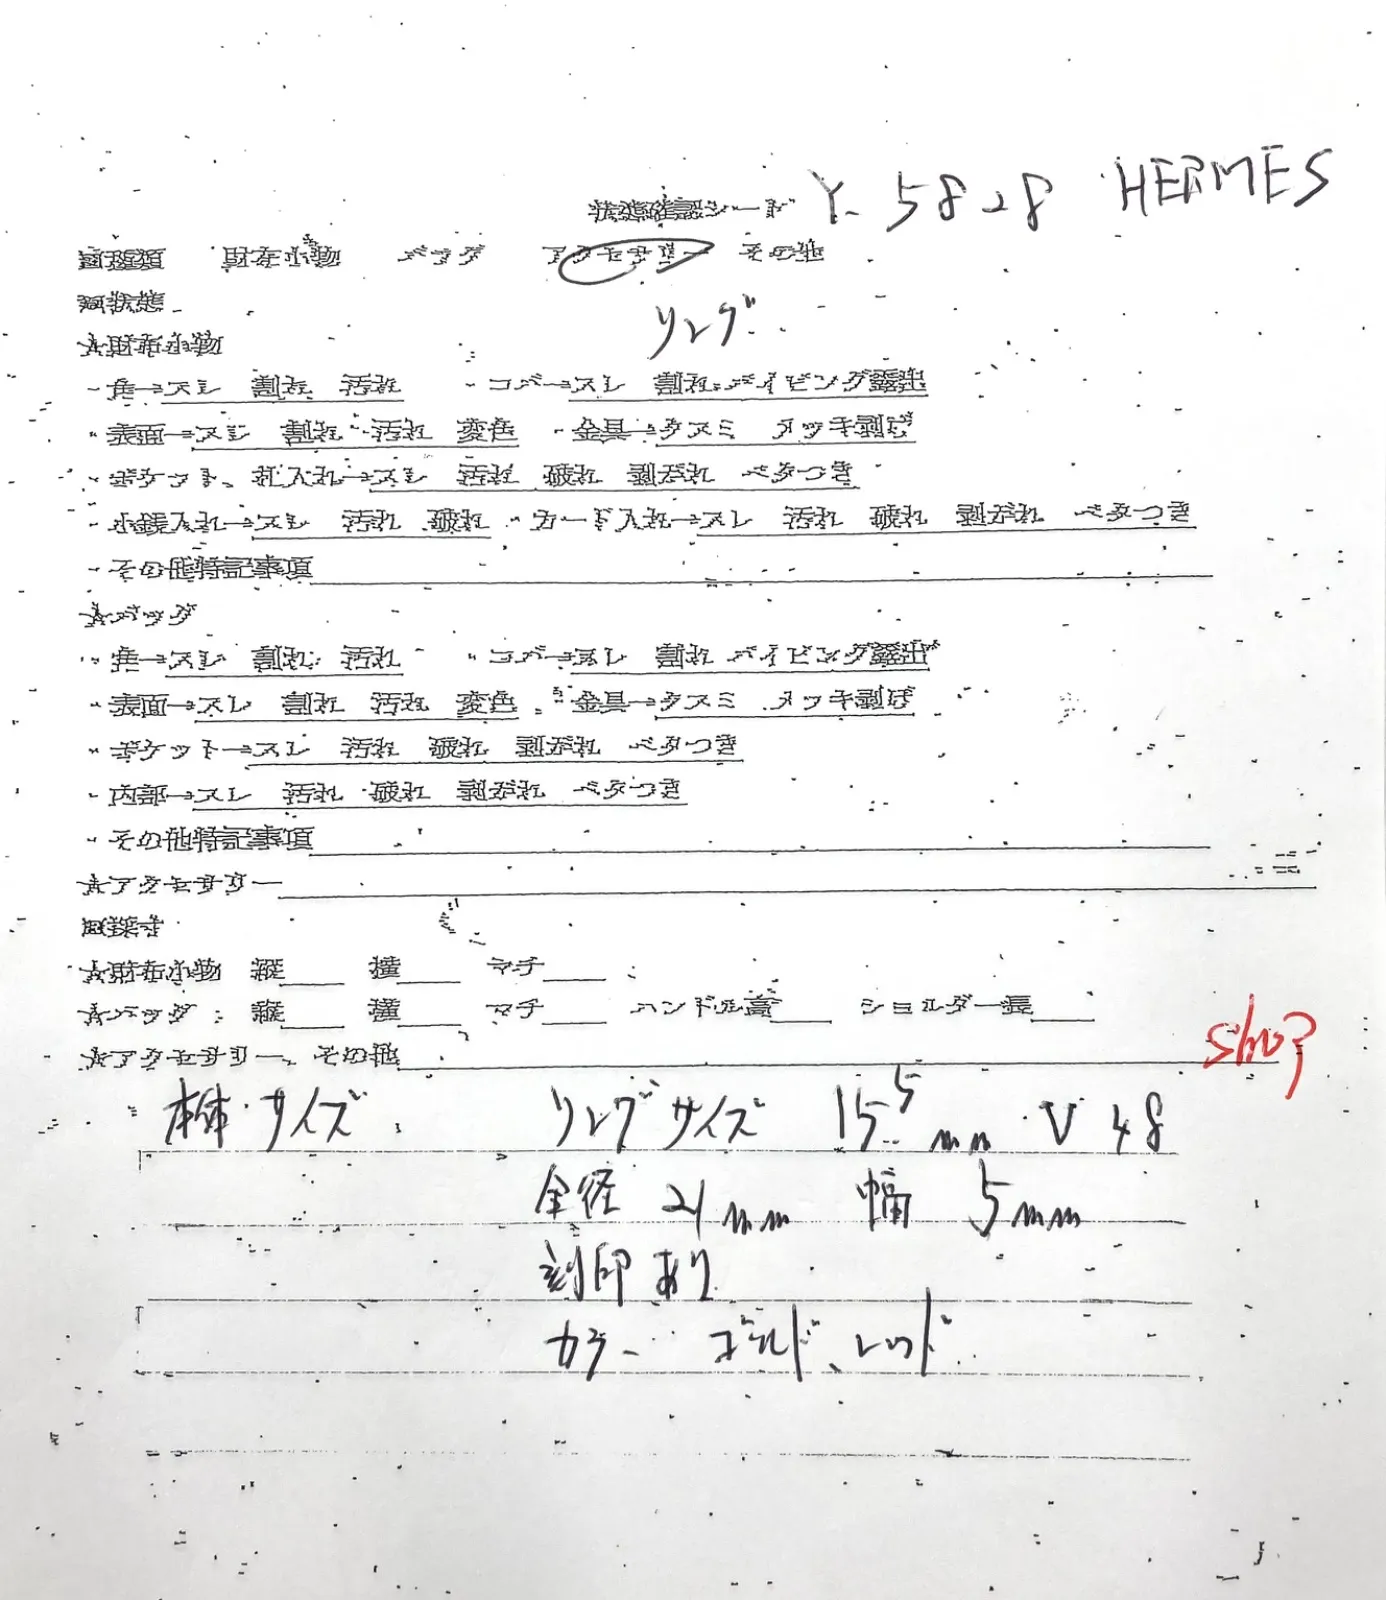 状態確認シート Y-5828 HERMES
財布小物 バッグ アクセサリー その他
□状態
リング
☆財布小物
・角→スレ 割れ 汚れ ・コバ→スレ 割れ パイピング露出
・表面→スレ 割れ 汚れ 変色 ・金具→クスミ メッキ剥げ
・ポケット、札入れ→スレ 汚れ 破れ 剥がれ ベタつき
・小銭入れ→スレ 汚れ 破れ ・カード入れ→スレ 汚れ 破れ 剥がれ ベタつき
・その他特記事項
☆バッグ
・角→スレ 割れ 汚れ ・コバ→スレ 割れ パイピング露出
・表面→スレ 割れ 汚れ 変色 ・金具→クスミ メッキ剥げ
・ポケット→スレ 汚れ 破れ 剥がれ ベタつき
・内部→スレ 汚れ 破れ 剥がれ ベタつき
・その他特記事項
☆アクセサリー
□採寸
☆財布小物 縦 横 マチ
☆バッグ 縦 横 マチ ハンドル高 ショルダー長
☆アクセサリー、その他
本体サイズ リングサイズ 15.5mm 48
全径 21mm 幅 5mm
刻印あり
カラー ゴールド、レッド